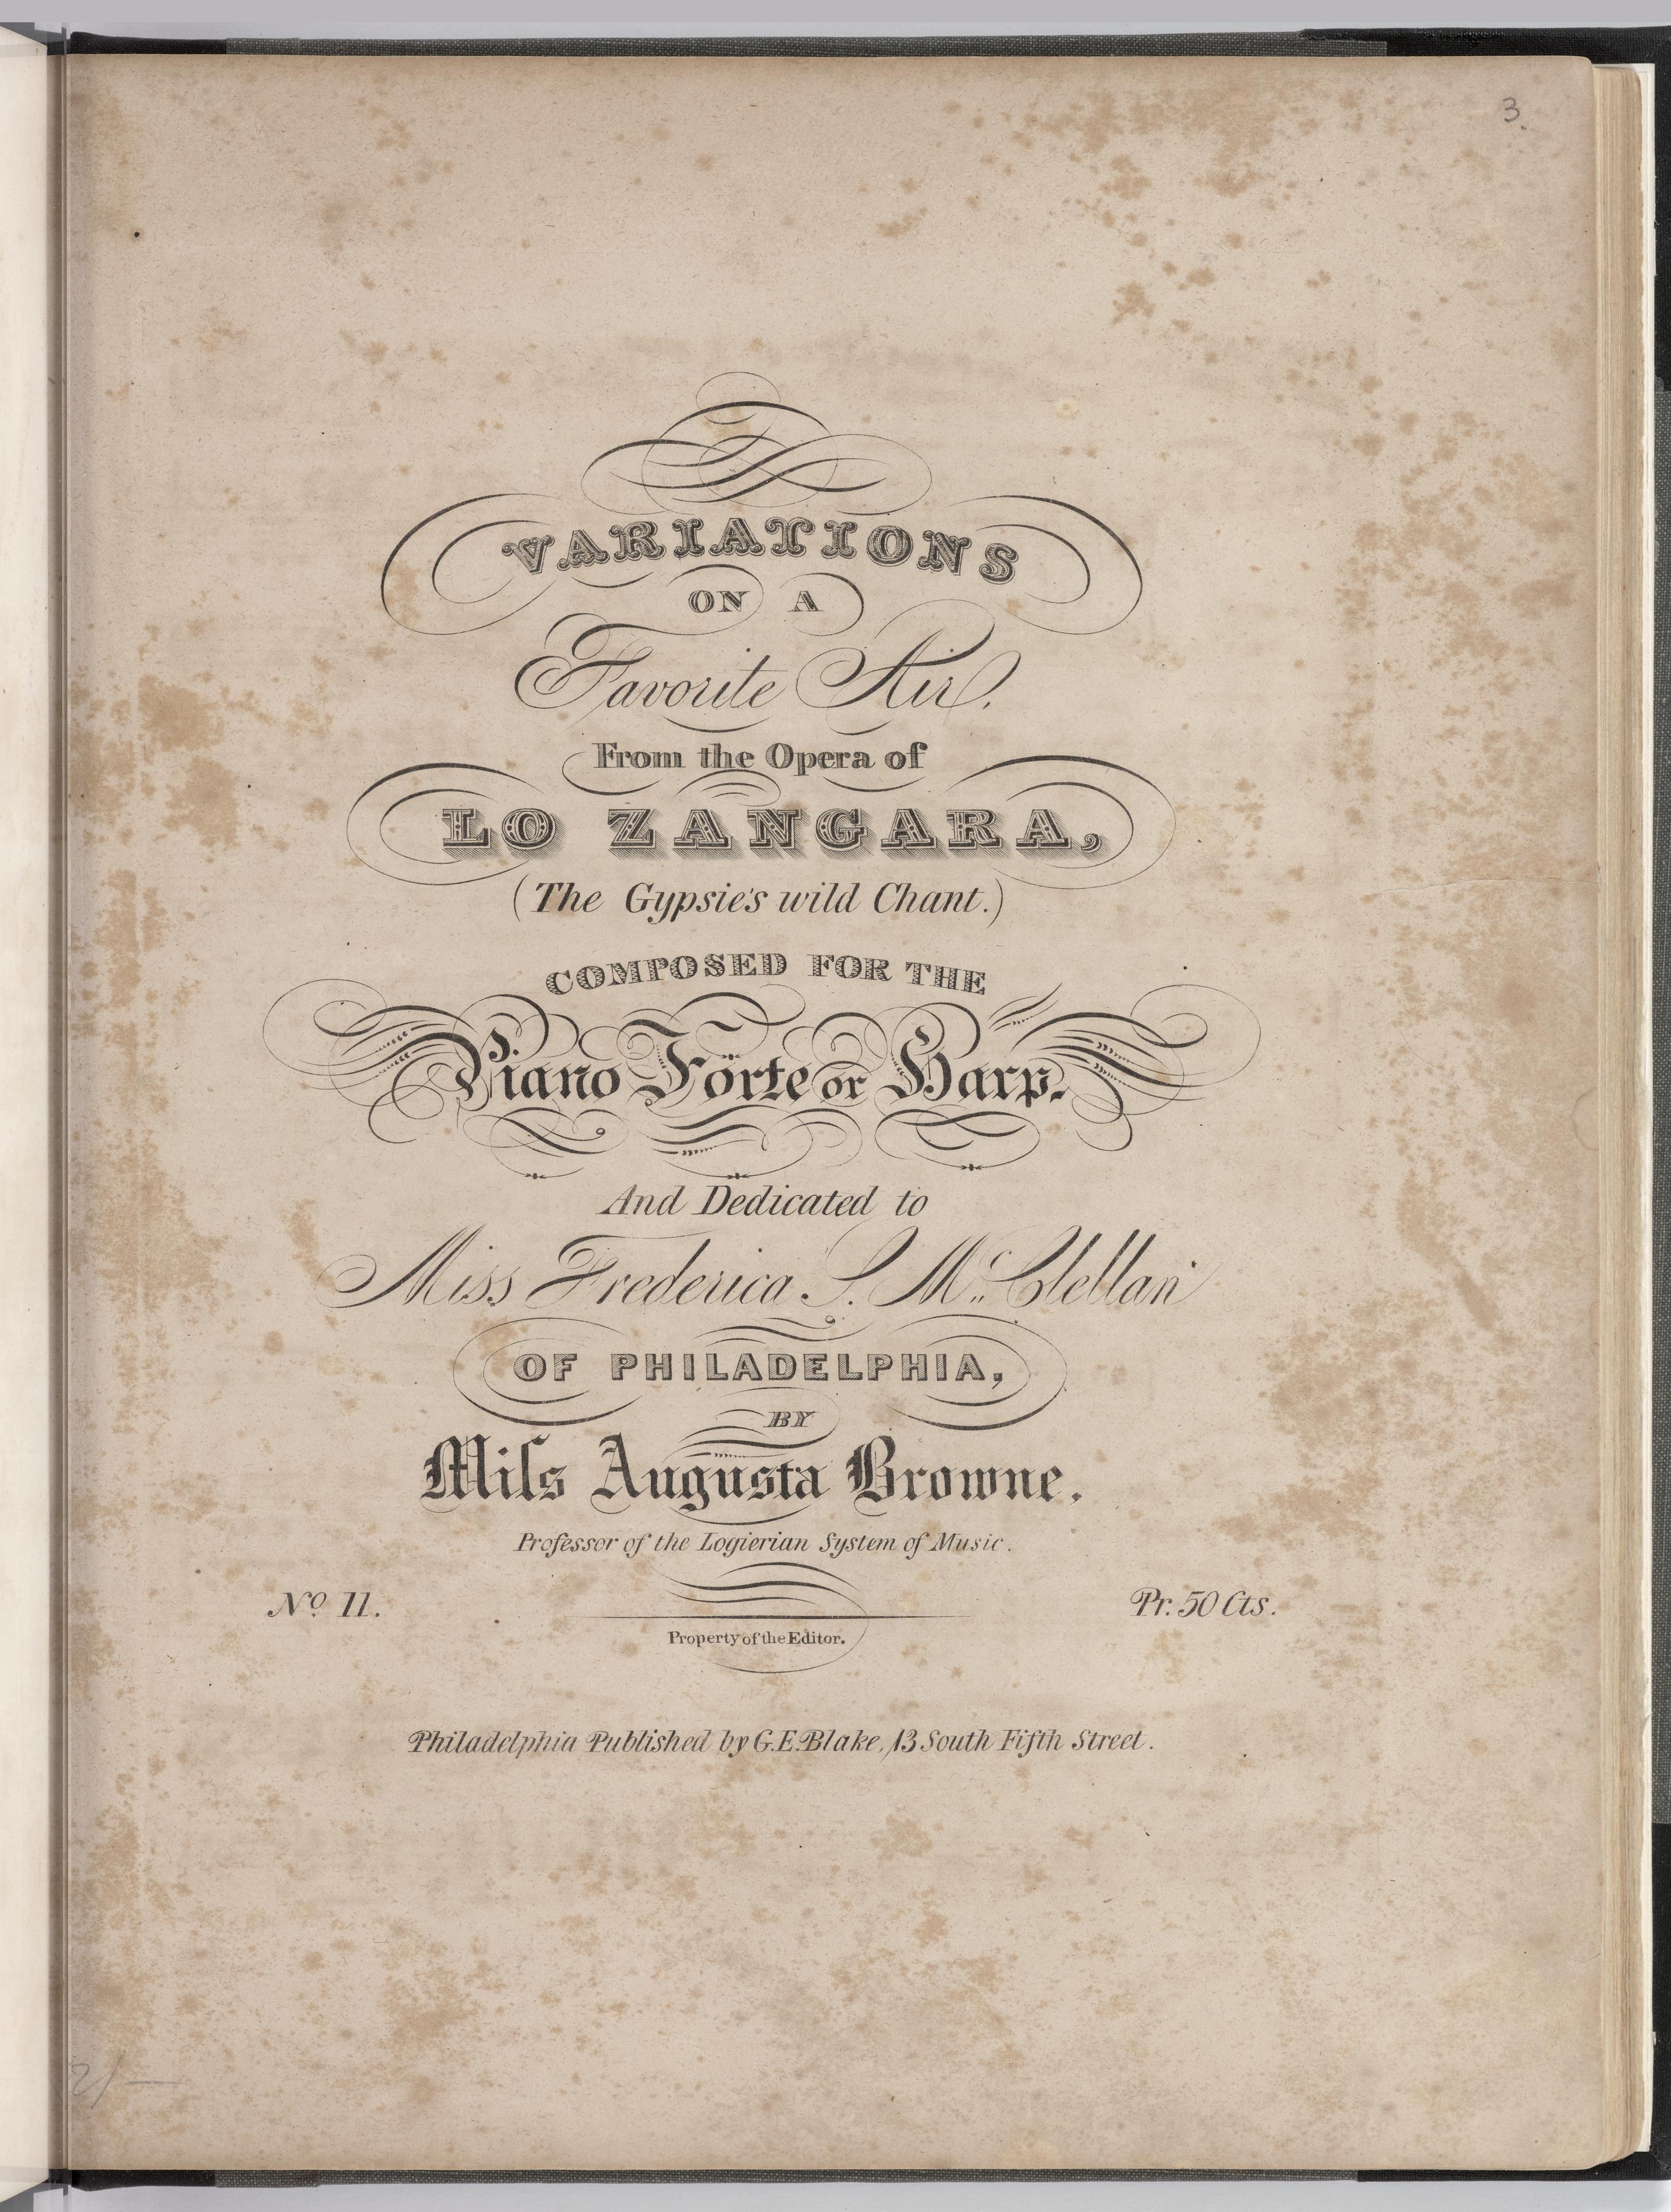 3.
VARIATIONS
ON A
Favorite Air.
From the Opera of
LO ZANGARA,
(The Gypsie's wild Chant.)
COMPOSED FOR THE
Piano Forte or Harp.
And Dedicated to
Miss Frederica S. Mc. Clellan
OF PHILADELPHIA,
BY
Miſs Augusta Browne.
Professor of the Logierian System of Music.
No. 11.
Pr. 50 Cts.
Property of the Editor.
Philadelphia Published by G. E. Blake, 13 South Fifth Street.
2/-